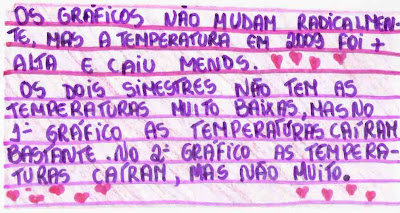 OS GRÁFICOS NÃO MUDAM RADICALMEN-
TE, MAS A TEMPERATURA EM 2009 FOI +
ALTA E CAIU MENOS.
OS DOIS SIMESTRES NÃO TEM AS
TEMPERATURAS MUITO BAIXAS, MAS NO
1º GRÁFICO AS TEMPERATURAS CAÍRAM
BASTANTE. NO 2º GRÁFICO AS TEMPERA-
TURAS CAÍRAM, MAS NÃO MUITO.